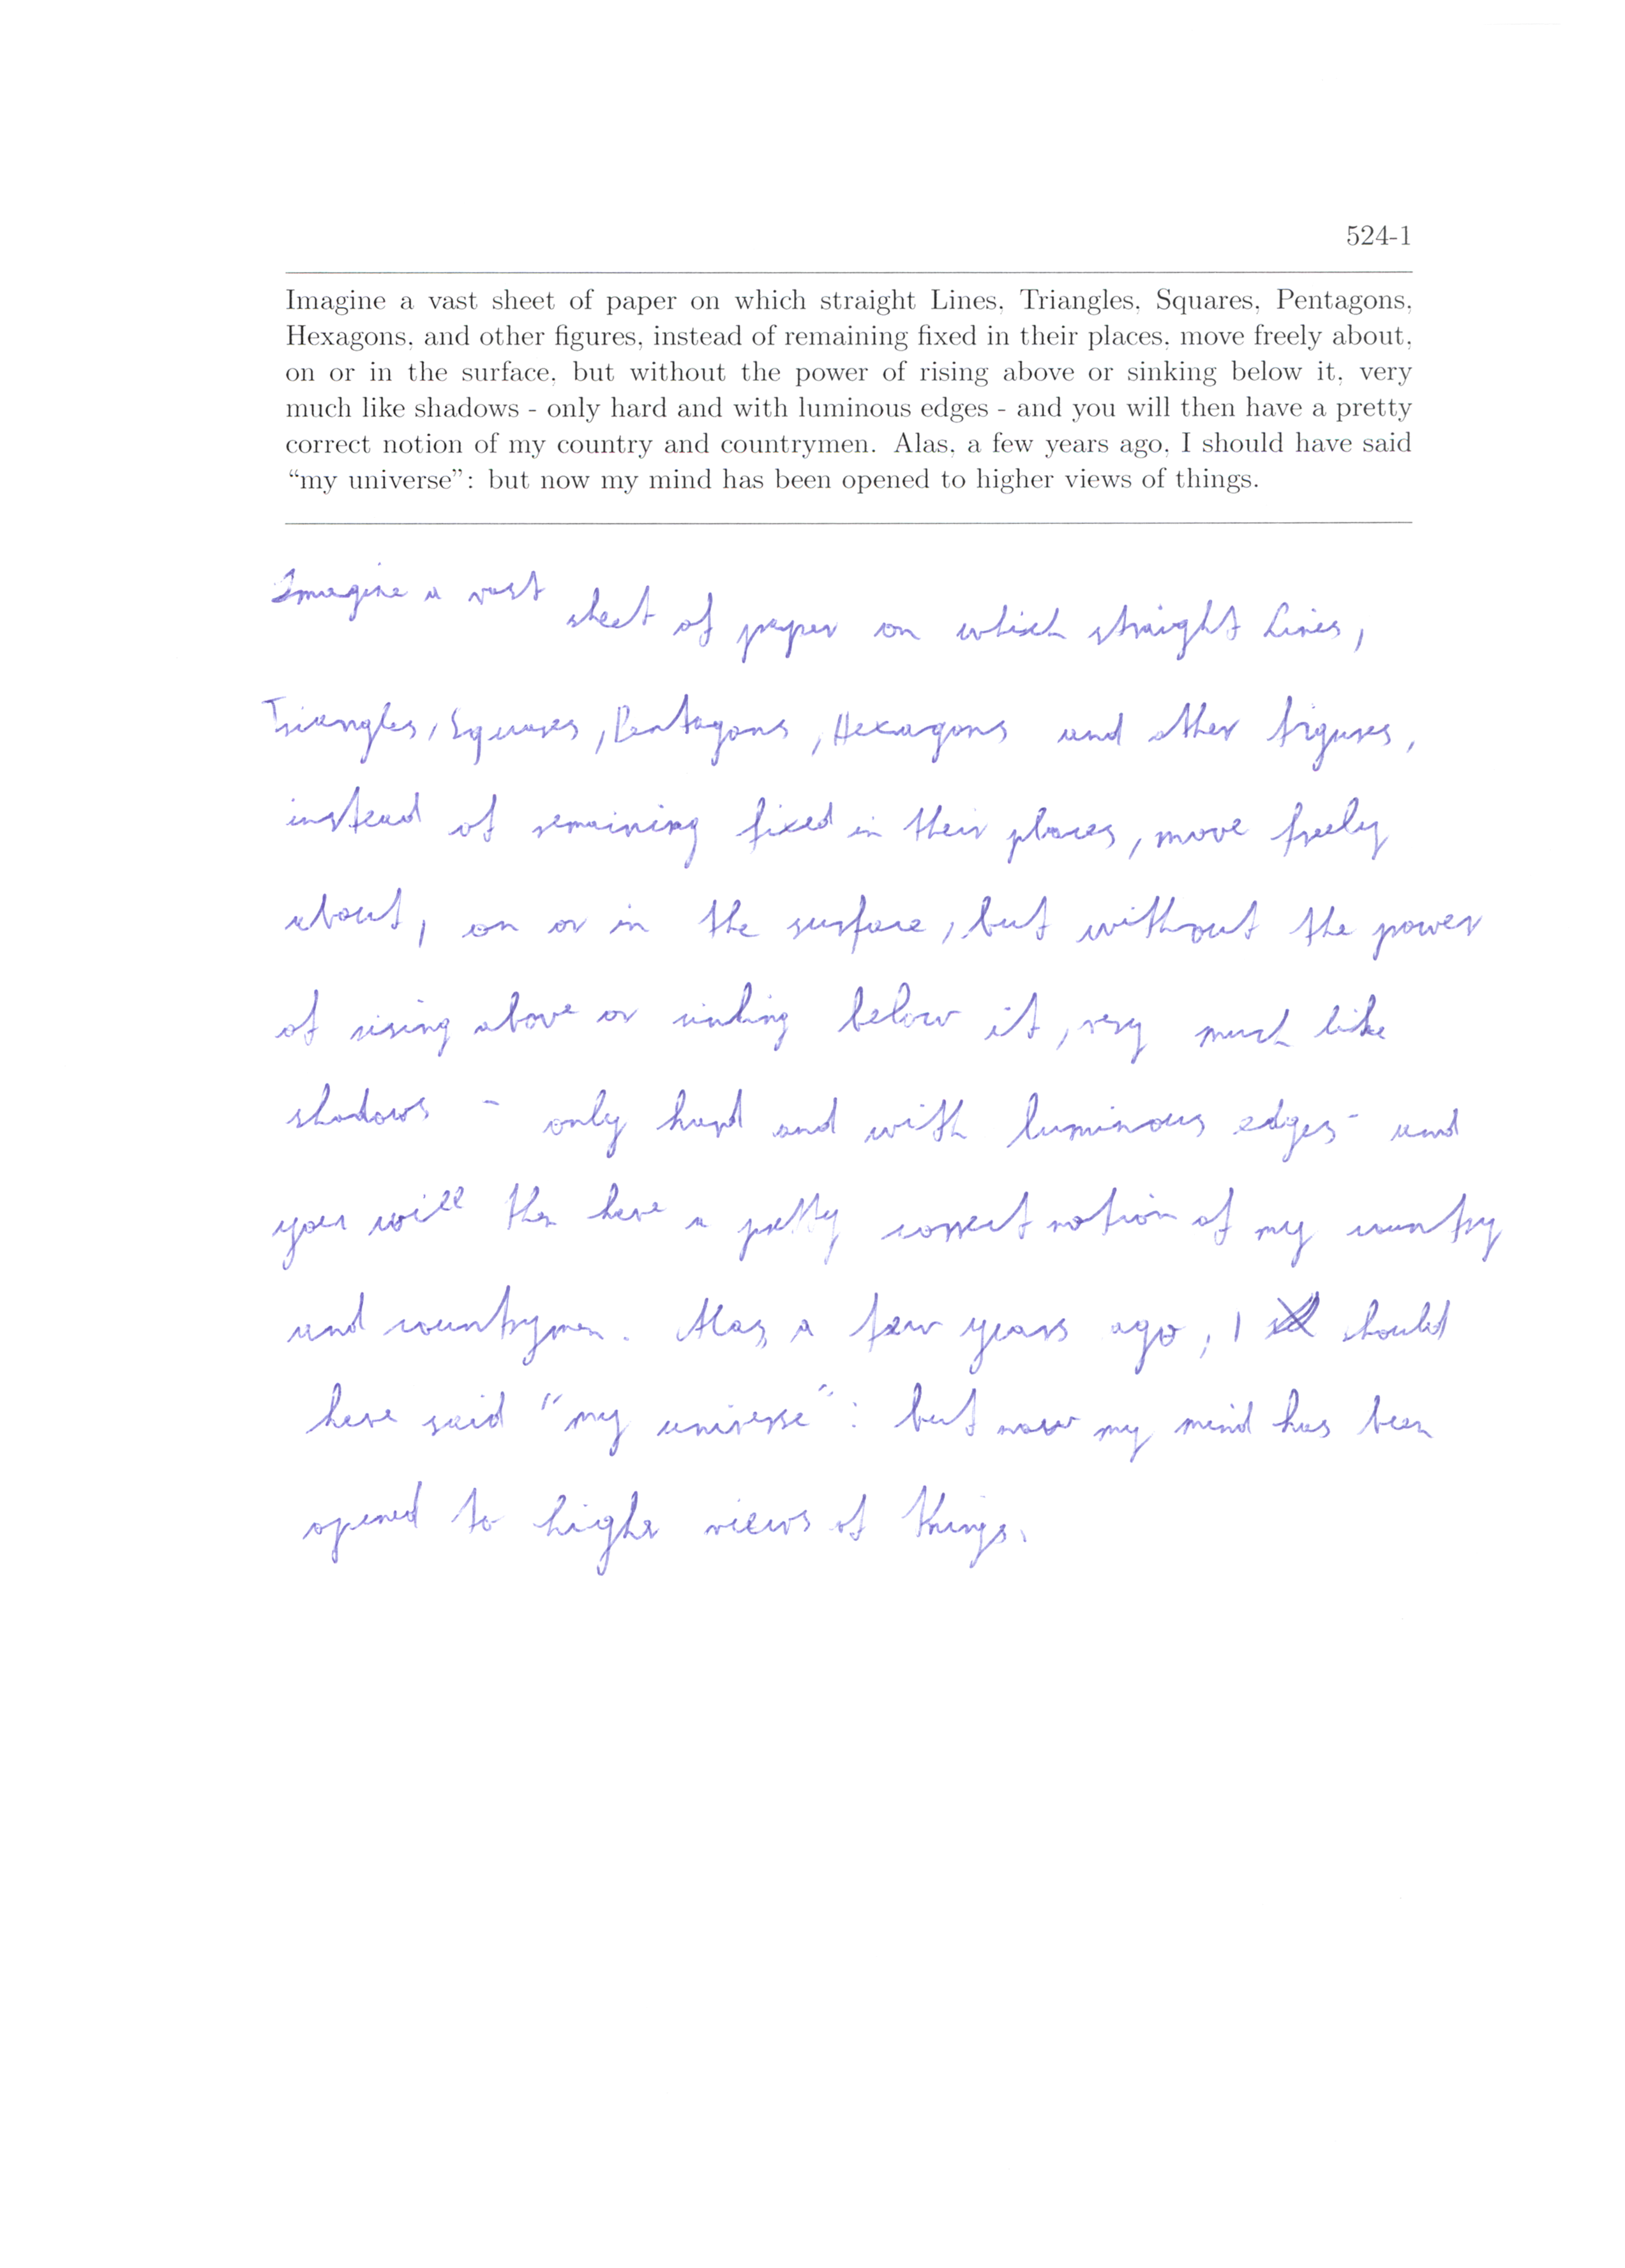 524-1
Imagine a vast sheet of paper on which straight Lines, Triangles, Squares, Pentagons,
Hexagons, and other figures, instead of remaining fixed in their places, move freely about,
on or in the surface, but without the power of rising above or sinking below it, very
much like shadows - only hard and with luminous edges - and you will then have a pretty
correct notion of my country and countrymen. Alas, a few years ago, I should have said
“my universe”: but now my mind has been opened to higher views of things.
Imagine a vast sheet of paper on which straight Lines,
Triangles, Squares, Pentagons, Hexagons and other figures,
instead of remaining fixed in their places, move freely
about, on or in the surface, but without the power
of rising above or sinking below it, very much like
shadows - only hard and with luminous edges - and
you will then have a pretty correct notion of my country
and countrymen. Alas, a few years ago, I should
have said "my universe": but now my mind has been
opened to higher views of things.